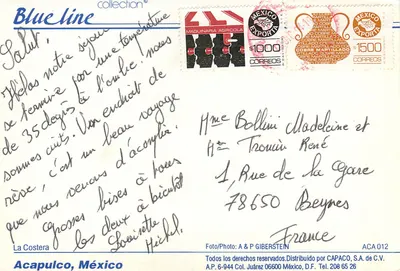 collection
Blue line
Salut,
Hélas notre séjour
se termine par une température
de 35 degrés à l'ombre, nous
sommes cuits. Un endroit de
rêve, c'est un beau voyage
que nous venons d'accomplir.
Grosses bises à tous
les deux à bientôt
Louisette
Michel.
MAQUINARIA AGRICOLA
1000
CORREOS
MEXICO EXPORTA
COBRE MARTILLADO
1500
CORREOS
MEXICO EXPORTA
Mme Bollini Madeleine et
Mr Tronin René
1, Rue de la gare
78650 Beynes
France
La Costera
Foto/Photo: A & P GIBERSTEIN
ACA 012
Acapulco, México
Todos los derechos reservados. Distribuido por CAPACO, S.A. de C.V.
A.P. 6-944 Col. Juárez 06600 México, D.F. Tel. 208 65 26